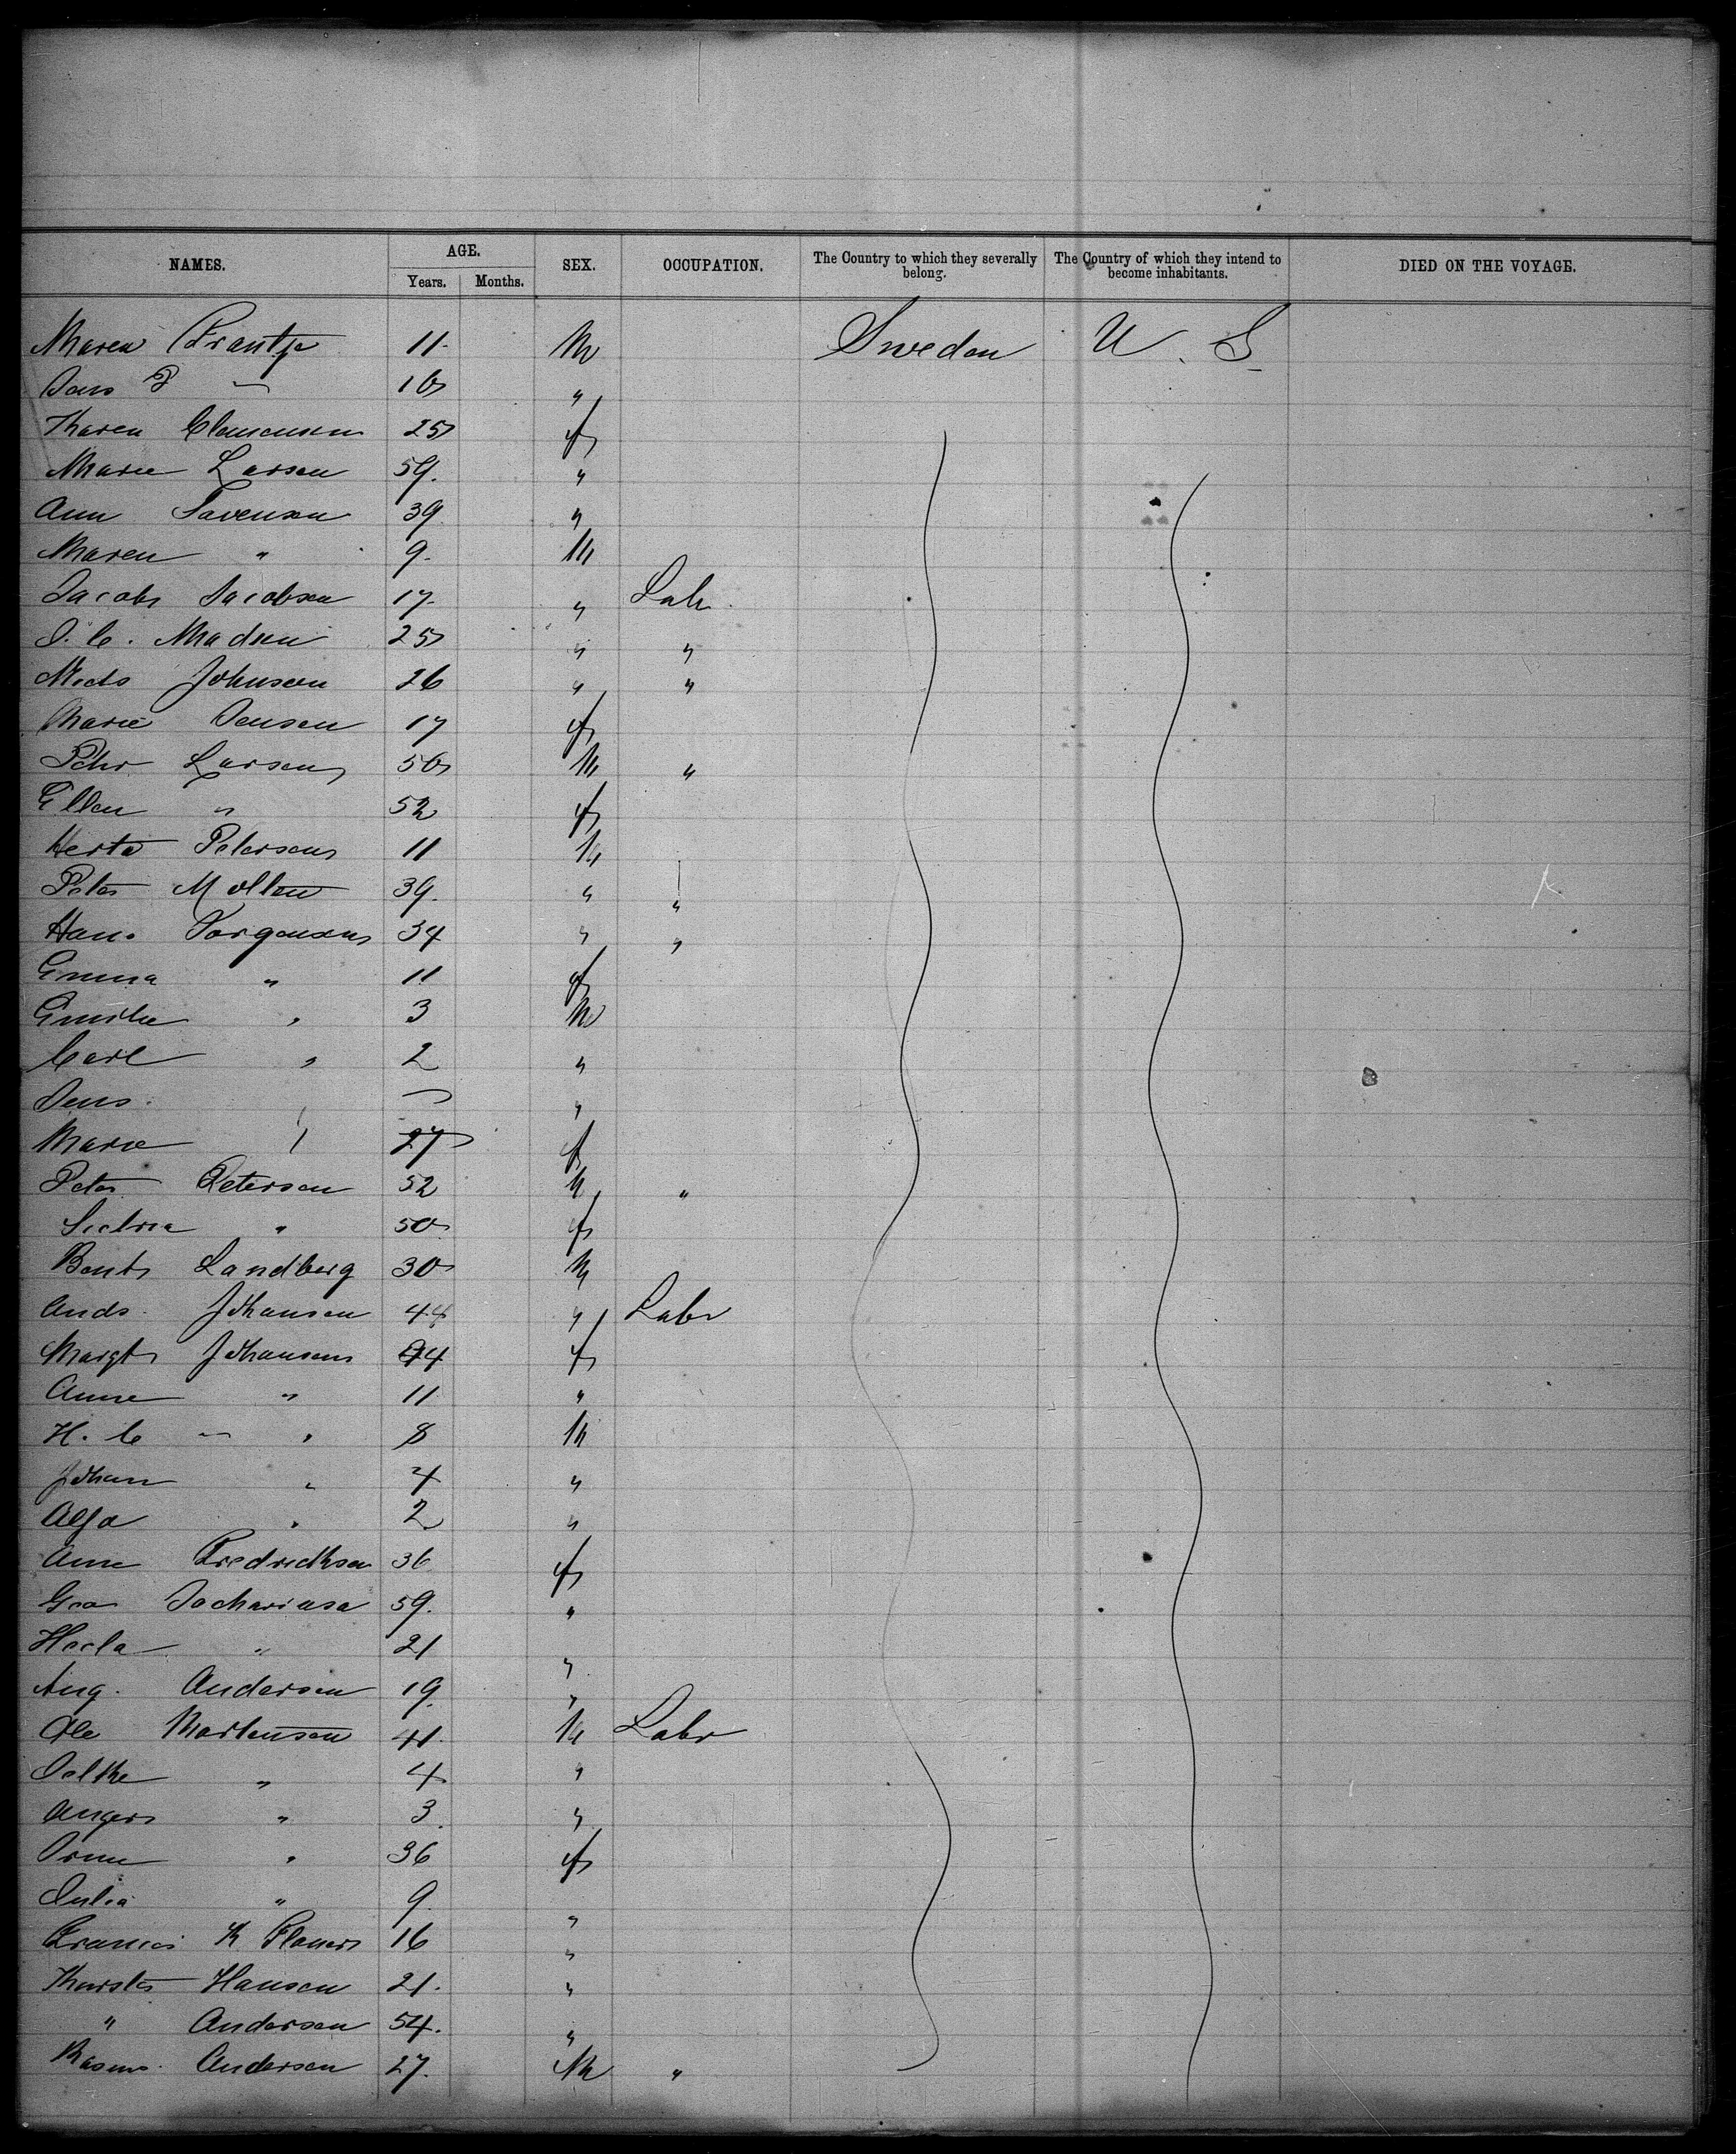 NAMES. AGE. SEX. OCCUPATION. The Country to which they severally belong. The Country of which they intend to become inhabitants. DIED ON THE VOYAGE.
Years. Months.
Maren Frantze 11 M Sweden U. S
Jens P — 16 "
Karen Clemensen 25 f
Marie Larsen 59. "
Ann Sorensen 39 "
Maren " 9. M
Jacob Jacobsen 17 " Labr
J. C. Madsen 25 " "
Meds Johnsen 26 " "
Marie Jensen 17 f
Pehr Larsen 56 M "
Ellen " 52 f
Herta Petersen 11 M
Peter Molten 39. " "
Hans Jorgensen 34 " "
Emma " 11 f
Emilie " 3 M
Carl " 2 "
Jens. " — "
Marie " 27 f
Peter Petersen 52 M "
" 50 f
Bent Landberg 30 M
Ands. Johansen 44 " Labr
Margt Johansen 44 f
Anne " 11 "
H. C — " 8 M
Johan " 4 "
" 2 "
Ann Fredricksen 36 f
59. "
Hecla " 21 "
Aug. Andersen 19. "
Ole Martensen 41. M Labr
" 4 "
" 3. "
" 36 f
Julia " 9. "
Francis K 16 "
Karsten Hansen 21. "
" Andersen 54. "
Rasms. Andersen 27. M "